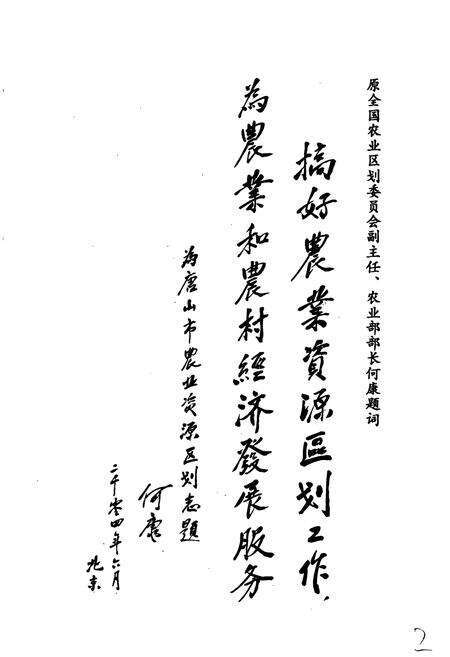 原全国农业区划委员会副主任、农业部部长何康题词
搞好農業資源區划工作、
為農業和農村經济發展服务
为唐山市農业资源区划志题
何康
二千零四年六月
北京
2